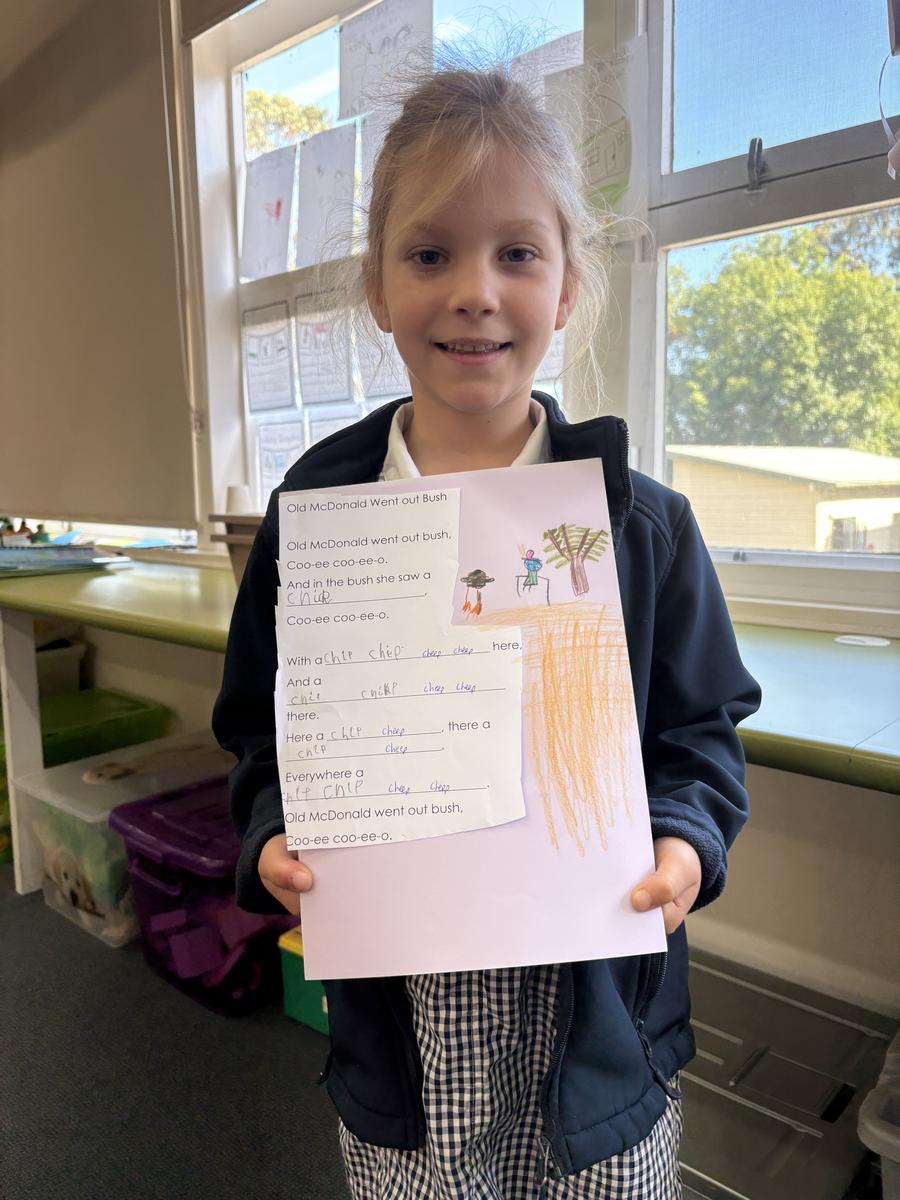 Old McDonald Went out Bush
Old McDonald went out bush,
Coo-ee coo-ee-o.
And in the bush she saw a
chick.
Coo-ee coo-ee-o.
With a chip chep cheep cheep here,
And a
chip chip cheep cheep
there.
Here a chip cheep, there a
chip cheep.
Everywhere a
chip chip cheep cheep.
Old McDonald went out bush,
Coo-ee coo-ee-o.